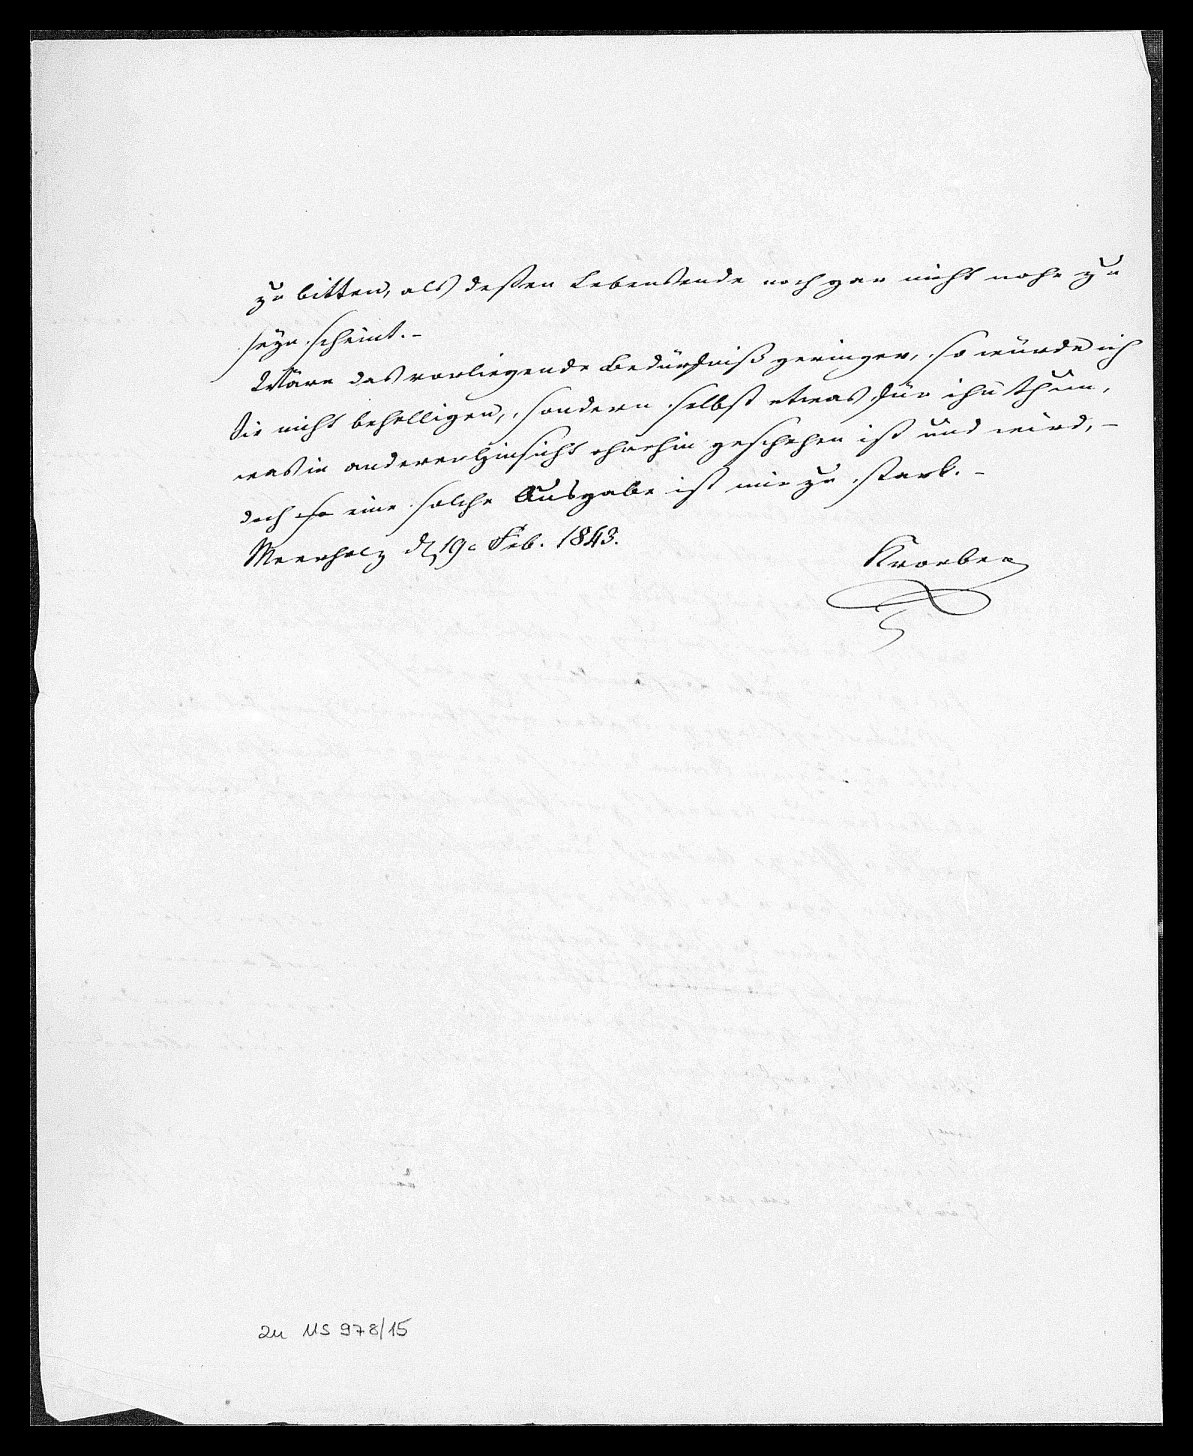 zu bitten, als deßen Lebensende noch gar nicht nahe zu
seyn scheint. -
Wäre das vorliegende Bedürfniß geringer, so würde ich
Sie nicht behelligen, sondern selbst etwas für ihn thun,
was in anderer Hinsicht ohnehin geschehen ist und wird, -
doch so eine solche Ausgabe ist mir zu stark. -
Meerholz d. 19. Feb. 1843.
Kroeber
zu MS 978/15